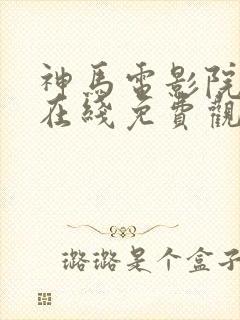 神馬電影院
在綫免費觀
璐璐是个盒子